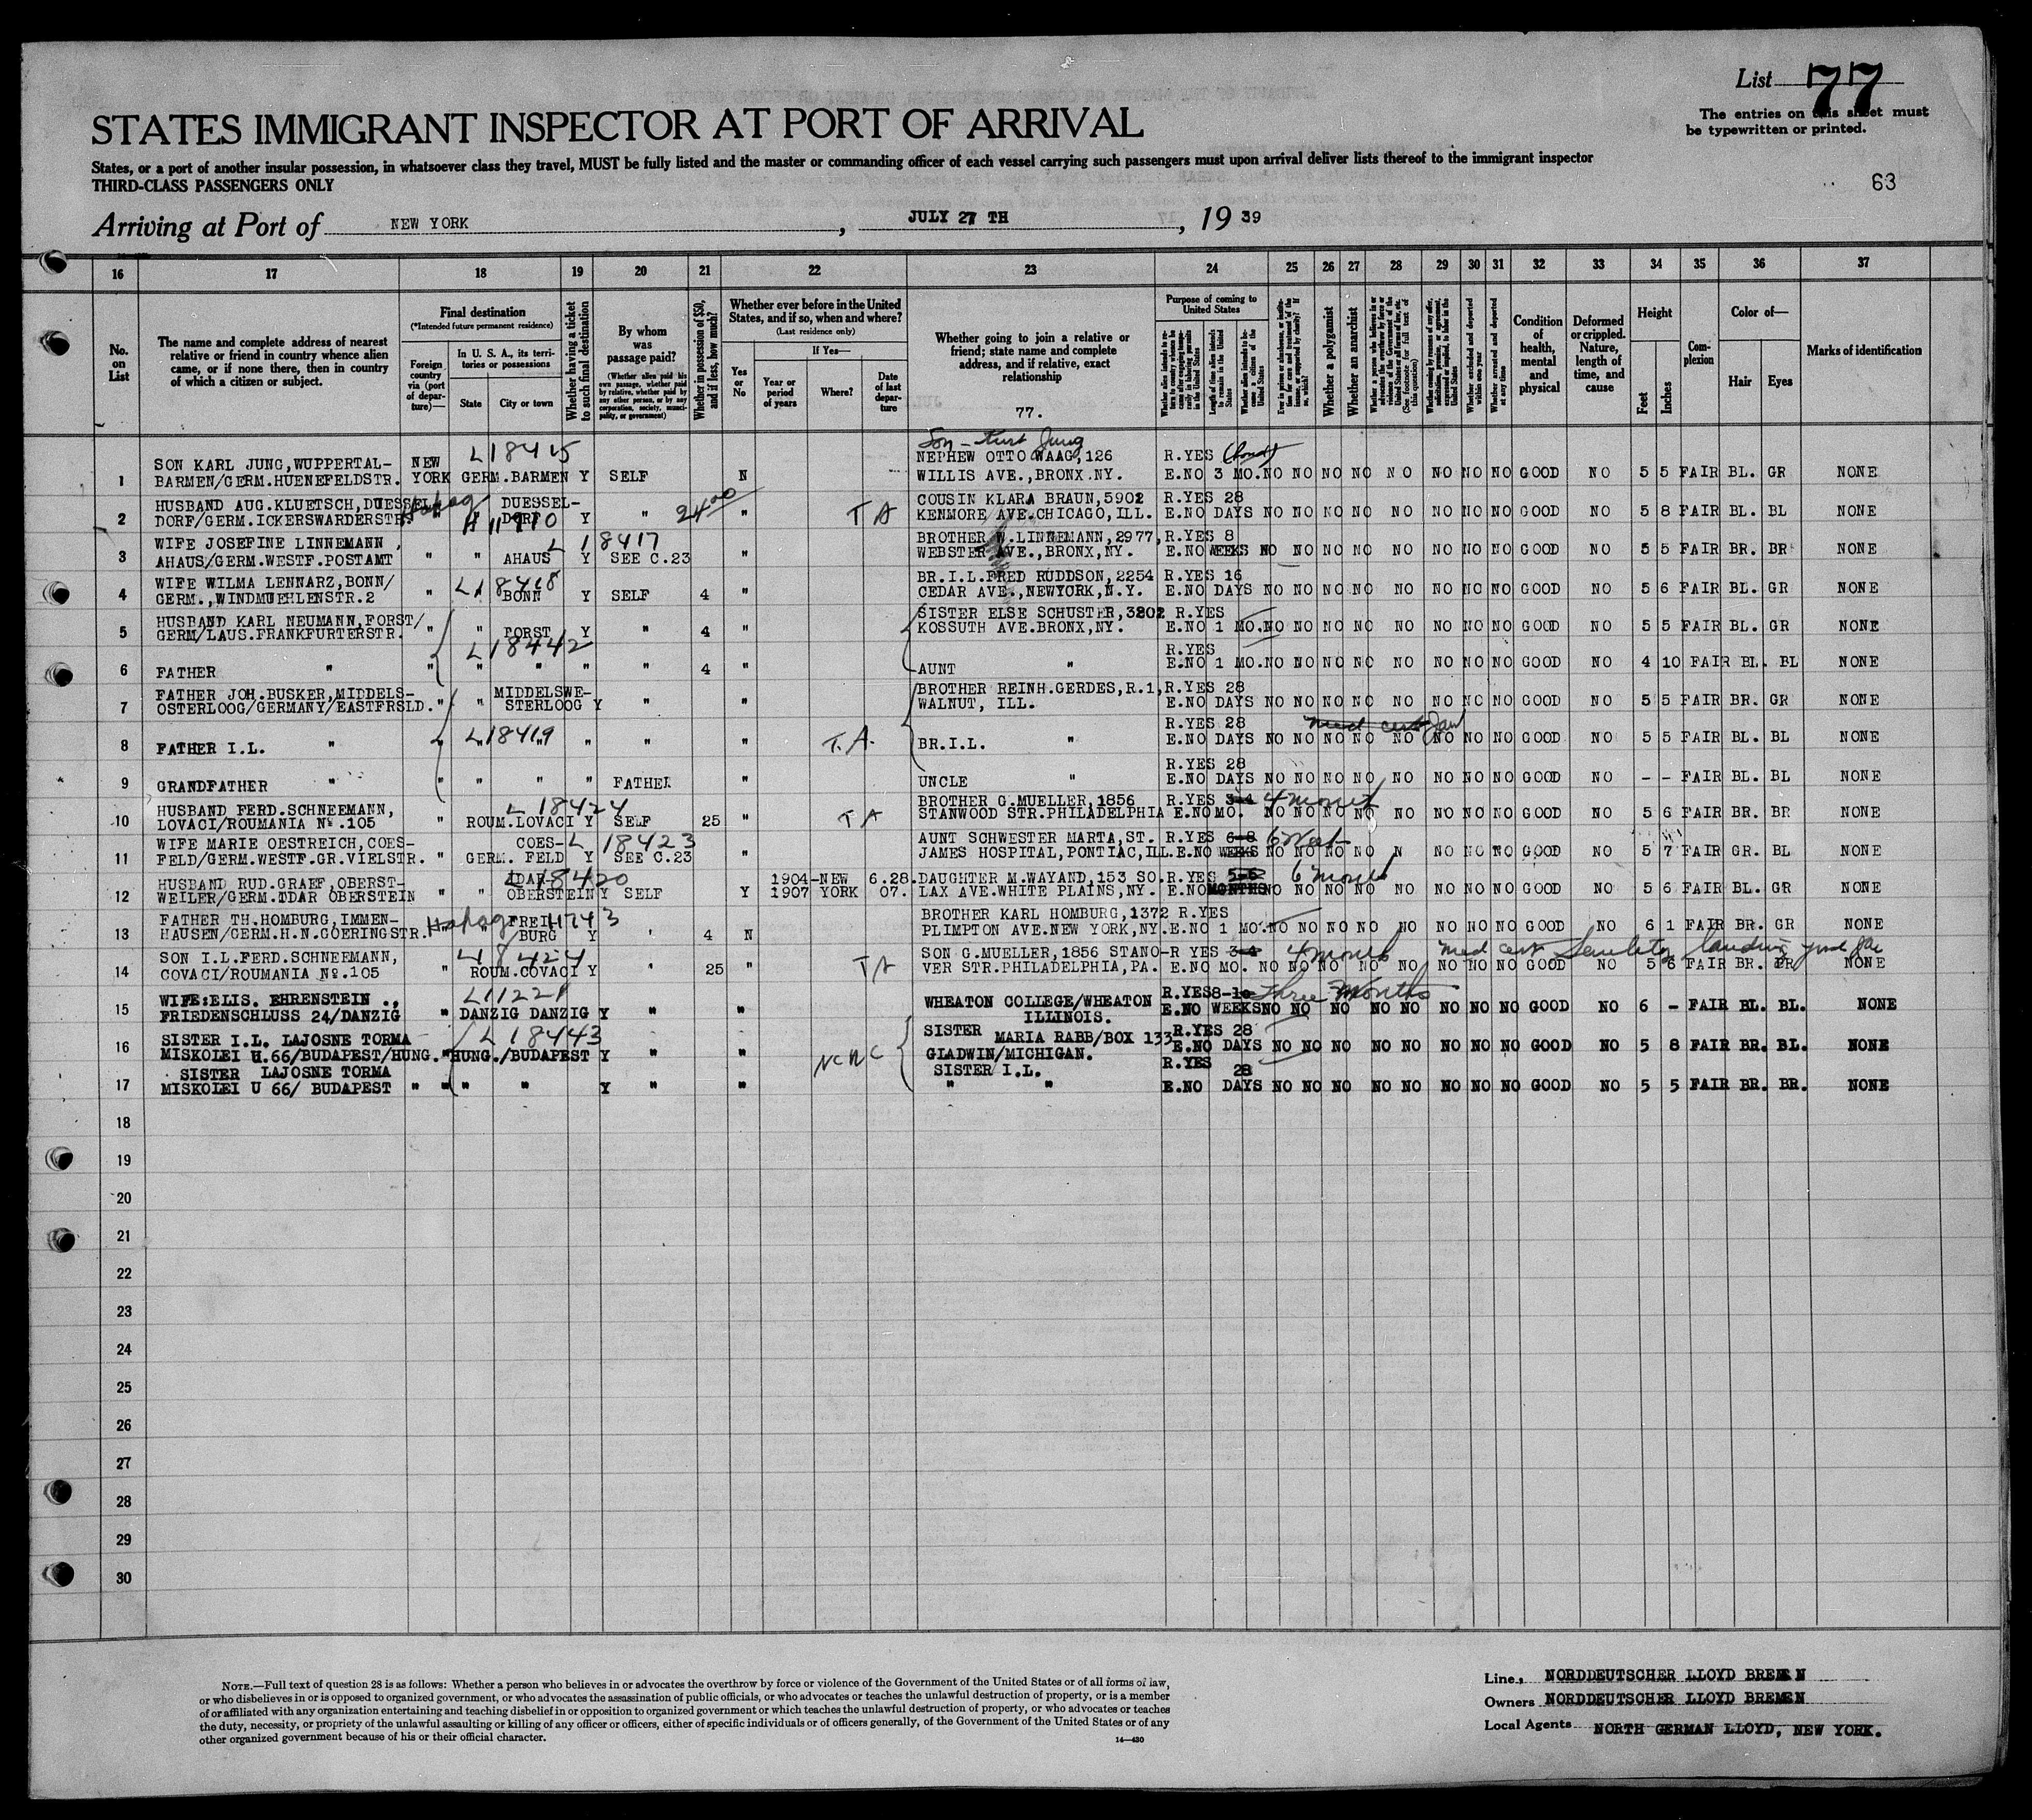 List 77
The entries on this sheet must
be typewritten or printed.
STATES IMMIGRANT INSPECTOR AT PORT OF ARRIVAL
States, or a port of another insular possession, in whatsoever class they travel, MUST be fully listed and the master or commanding officer of each vessel carrying such passengers must upon arrival deliver lists thereof to the immigrant inspector
THIRD-CLASS PASSENGERS ONLY
63
Arriving at Port of NEW YORK, JULY 27 TH, 19 39
16 17 18 19 20 21 22 23 24 25 26 27 28 29 30 31 32 33 34 35 36 37
No. on List
The name and complete address of nearest relative or friend in country whence alien came, or if none there, then in country of which a citizen or subject.
Final destination
(*Intended future permanent residence)
Foreign country via (port of departure)—
In U. S. A., its territories or possessions
State
City or town
Whether having a ticket to such final destination
By whom was passage paid?
(Whether alien paid his own passage, whether paid by relative, whether paid by any other person, or by any corporation, society, municipality, or government)
Whether in possession of $50, and if less, how much?
Whether ever before in the United States, and if so, when and where?
(Last residence only)
Yes or No
If Yes—
Year or period of years
Where?
Date of last departure
Whether going to join a relative or friend; state name and complete address, and if relative, exact relationship
77.
Purpose of coming to United States
Whether alien intends to return to country whence he came after engaging temporarily in laboring pursuits in the United States
Length of time alien intends to remain in the United States
Whether alien intends to become a citizen of the United States
Ever in prison or almshouse, or institution for care and treatment of the insane, or supported by charity? If so, which?
Whether a polygamist
Whether an anarchist
(See footnote for full text of this question)
Whether excluded and deported within one year
Whether arrested and deported at any time
Condition of health, mental and physical
Deformed or crippled. Nature, length of time, and cause
Height
Feet
Inches
Complexion
Color of—
Hair
Eyes
Marks of identification
L18415 Son - Kurt Jung
SON KARL JUNG,WUPPERTAL- NEW NEPHEW OTTO WAAG,126 R.YES
1 BARMEN/GERM.HUENEFELDSTR. YORK GERM.BARMEN Y SELF N WILLIS AVE.,BRONX.NY. E.NO 3 MO. NO NO NO NO NO NO NO NO GOOD NO 5 5 FAIR BL. GR NONE
HUSBAND AUG.KLUETSCH,DUESSEL- Hapag DUESSEL- 24.00 COUSIN KLARA BRAUN,5902 R.YES 28
2 DORF/GERM.ICKERSWARDERSTR. " DORF Y " " T A KENMORE AVE.CHICAGO,ILL. E.NO DAYS NO NO NO NO NO NO NO NO GOOD NO 5 8 FAIR BL. BL NONE
WIFE JOSEFINE LINNEMANN, L 18417 BROTHER W.LINNEMANN,2977, R.YES 8
3 AHAUS/GERM.WESTF.POSTAMT " " AHAUS Y SEE C.23 " WEBSTER AVE.,BRONX,NY. E.NO WEEKS NO NO NO NO NO NO NO NO GOOD NO 5 5 FAIR BR. BR NONE
WIFE WILMA LENNARZ,BONN/ L18418 BR.I.L.FRED RUDDSON,2254 R.YES 16
4 GERM.,WINDMUEHLENSTR.2 " BONN Y SELF 4 " CEDAR AVE.,NEWYORK,N.Y. E.NO DAYS NO NO NO NO NO NO NO NO GOOD NO 5 6 FAIR BL. GR NONE
HUSBAND KARL NEUMANN,FORST/ SISTER ELSE SCHUSTER,3202 R.YES
5 GERM/LAUS.FRANKFURTERSTR. " " FORST Y " 4 " KOSSUTH AVE.BRONX,NY. E.NO 1 MO.NO NO NO NO NO NO NO NO GOOD NO 5 5 FAIR BL. GR NONE
L18442 R.YES
6 FATHER " " " " " " 4 " AUNT " E.NO 1 MO.NO NO NO NO NO NO NO NO GOOD NO 4 10 FAIR BL. BL NONE
FATHER JOH.BUSKER,MIDDELS- MIDDELSWE- BROTHER REINH.GERDES,R.1, R.YES 28
7 OSTERLOOG/GERMANY/EASTFRSLD. " " STERLOOG Y " " WALNUT, ILL. E.NO DAYS NO NO NO NO NO NO NO NO GOOD NO 5 5 FAIR BR. GR NONE
L18419 R.YES 28 med cert
8 FATHER I.L. " " " " " T.A. BR.I.L. " E.NO DAYS NO NO NO NO NO NO NO NO GOOD NO 5 5 FAIR BL. BL NONE
R.YES 28
9 GRANDFATHER " " " " " FATHER " UNCLE " E.NO DAYS NO NO NO NO NO NO NO NO GOOD NO - - FAIR BL. BL NONE
HUSBAND FERD.SCHNEEMANN, L 18424 BROTHER G.MUELLER,1856 R.YES 3-4 4 month
10 LOVACI/ROUMANIA No.105 " ROUM.LOVACI Y SELF 25 " T A STANWOOD STR.PHILADELPHIA E.NO MO. NO NO NO NO NO NO NO NO GOOD NO 5 6 FAIR BR. BR NONE
WIFE MARIE OESTREICH,COES- COES- L 18423 AUNT SCHWESTER MARTA,ST. R.YES 6-8 6 Week
11 FELD/GERM.WESTF.GR.VIELSTR. " GERM. FELD Y SEE C.23 " JAMES HOSPITAL,PONTIAC,ILL.E.NO WEEKS NO NO NO NO N NO NO NO GOOD NO 5 7 FAIR GR. BL NONE
HUSBAND RUD.GRAEF,OBERST- IDAR- L18420 1904-NEW 6.28. DAUGHTER M.WAYAND,153 SO. R.YES 5-6 6 month
12 WEILER/GERM.IDAR OBERSTEIN " " OBERSTEIN Y SELF Y 1907 YORK 07. LAX AVE.WHITE PLAINS,NY. E.NO MONTHS NO NO NO NO NO NO NO NO GOOD NO 5 6 FAIR BL. GR NONE
FATHER TH.HOMBURG,IMMEN- Hapag FREI- BROTHER KARL HOMBURG,1372 R.YES
13 HAUSEN/GERM.H.N.GOERINGSTR. " /BURG Y " 4 N PLIMPTON AVE.NEW YORK,NY. E.NO 1 MO. NO NO NO NO NO NO NO NO GOOD NO 6 1 FAIR BR. GR NONE
SON I.L.FERD.SCHNEEMANN, L18424 SON G.MUELLER,1856 STANO- R YES 3-4 4 month med cert Senility landing
14 COVACI/ROUMANIA No.105 " ROUM.COVACI Y " 25 " T A VER STR.PHILADELPHIA,PA. E.NO MO. NO NO NO NO NO NO NO NO GOOD NO 5 6 FAIR BR. BR NONE
WIFE:ELIS. EHRENSTEIN ., L11221 WHEATON COLLEGE/WHEATON R.YES 8-10 Three Months
15 FRIEDENSCHLUSS 24/DANZIG " DANZIG DANZIG Y " " ILLINOIS. E.NO WEEKS NO NO NO NO NO NO NO NO GOOD NO 6 - FAIR BL. BL. NONE
SISTER I.L. LAJOSNE TORMA L 18443 SISTER MARIA RABB/BOX 133 R.YES 28
16 MISKOLEI U.66/BUDAPEST/HUNG. " HUNG./BUDAPEST Y " " NCNC GLADWIN/MICHIGAN. E.NO DAYS NO NO NO NO NO NO NO NO GOOD NO 5 8 FAIR BR. BL. NONE
SISTER LAJOSNE TORMA SISTER I.L. R.YES 28
17 MISKOLEI U 66/ BUDAPEST " " " " Y " " " " E.NO DAYS NO NO NO NO NO NO NO NO GOOD NO 5 5 FAIR BR. BR. NONE
18
19
20
21
22
23
24
25
26
27
28
29
30
NOTE.—Full text of question 28 is as follows: Whether a person who believes in or advocates the overthrow by force or violence of the Government of the United States or of all forms of law,
or who disbelieves in or is opposed to organized government, or who advocates the assassination of public officials, or who advocates or teaches the unlawful destruction of property, or is a member
of or affiliated with any organization entertaining and teaching disbelief in or opposition to organized government or which teaches the unlawful destruction of property, or who advocates or teaches
the duty, necessity, or propriety of the unlawful assaulting or killing of any officer or officers, either of specific individuals or of officers generally, of the Government of the United States or of any
other organized government because of his or their official character.
14—430
Line, NORDDEUTSCHER LLOYD BREMEN
Owners NORDDEUTSCHER LLOYD BREMEN
Local Agents NORTH GERMAN LLOYD, NEW YORK.